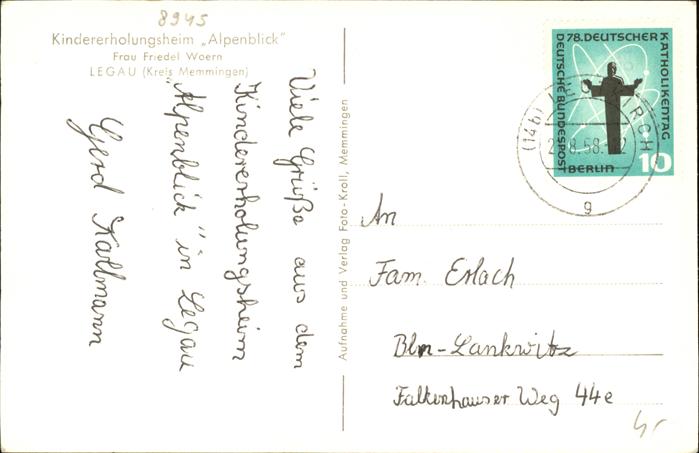 8945
Kindererholungsheim „Alpenblick"
Frau Friedel Woern
LEGAU (Kreis Memmingen)
Viele Grüße aus dem
Kindererholungsheim
„Alpenblick" in Legau
Gerd Kallmann
Aufnahme und Verlag Foto-Kroll, Memmingen
78. DEUTSCHER
KATHOLIKENTAG
DEUTSCHE BUNDESPOST
BERLIN
10
(14b)
KIRCH
8.58
g
An
Fam. Erlach
Bln-Lankwitz
Falkenhauser Weg 44e